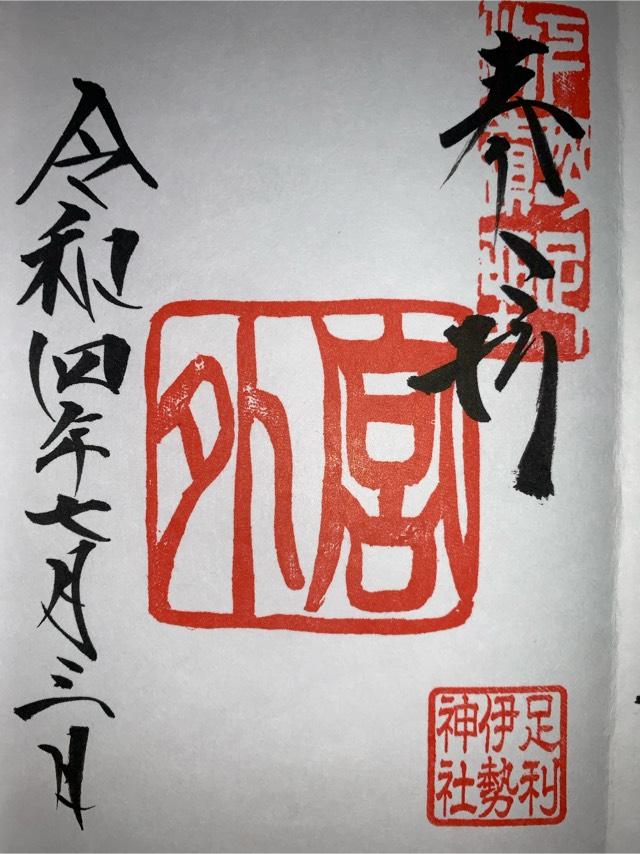 奉拝
外宮
足利
伊勢
神社
令和四年七月三日